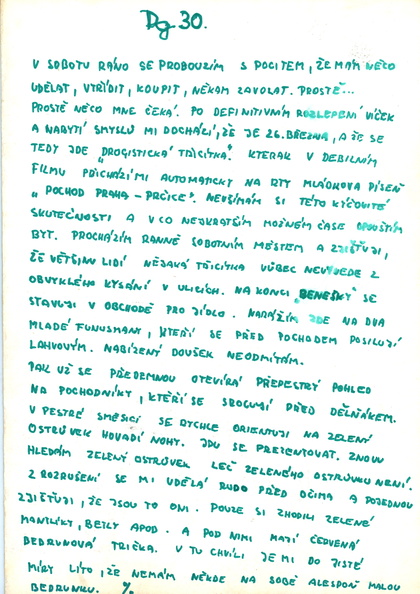 Dg 30.
V SOBOTU RÁNO SE PROBOUZÍM S POCITEM, ŽE MÁM NĚCO
UDĚLAT, VYŘÍDIT, KOUPIT, NĚKAM ZAVOLAT. PROSTĚ...
PROSTĚ NĚCO MNE ČEKÁ. PO DEFINITIVNÍM ROZLEPENÍ VÍČEK
A NABYTÍ SMYSLŮ MI DOCHÁZÍ, ŽE JE 26. BŘEZNA, A ŽE SE
TEDY JDE „DROGISTICKÁ TŘICÍTKA". KTERAK V DEBILNÍM
FILMU PŘICHÁZÍ MI AUTOMATICKY NA RTY MLÁDKOVA PÍSEŇ
„POCHOD PRAHA - PRČICE". NEVŠÍMÁM SI TÉTO KÝČOVITÉ
SKUTEČNOSTI A V CO NEJKRATŠÍM MOŽNÉM ČASE OPOUŠTÍM
BYT. PROCHÁZÍM RANNĚ SOBOTNÍM MĚSTEM A ZJIŠŤUJI,
ŽE VĚTŠINU LIDÍ NĚJAKÁ TŘICÍTKA VŮBEC NEVYVEDE Z
OBVYKLÉHO KYSÁNÍ V ULICÍCH. NA KONCI „BENEŠKY" SE
STAVUJI V OBCHODĚ PRO JÍDLO. NARÁŽÍM ZDE NA DVA
MLADÉ FUNUSMANY, KTEŘÍ SE PŘED POCHODEM POSILUJÍ
LAHVOVÝM. NABÍZENÝ DOUŠEK NEODMÍTÁM.
PAK UŽ SE PŘEDEMNOU OTEVÍRÁ PŘEPESTRÝ POHLED
NA POCHODNÍKY, KTEŘÍ SE SROCUJÍ PŘED DĚLŇÁKEM.
V PESTRÉ SMĚSICI SE RYCHLE ORIENTUJI NA ZELENÝ
OSTRŮVEK HOVADÍ NOHY. JDU SE PREZENTOVAT. ZNOVU
HLEDÁM ZELENÝ OSTRŮVEK LEČ ZELENÉHO OSTRŮVKU NENÍ.
Z ROZRUŠENÍ SE MI UDĚLÁ RUDO PŘED OČIMA A POJEDNOU
ZJIŠŤUJI, ŽE JSOU TO ONI. POUZE SI ZHODILI ZELENÉ
MANTLÍKY, BETLY APOD. A POD NIMI MAJÍ ČERVENÁ
BEDRUNOVÁ TRIČKA. V TU CHVÍLI JE MI DO JISTÉ
MÍRY LÍTO, ŽE NEMÁM NĚKDE NA SOBĚ ALESPOŇ MALOU
BEDRUNKU. %